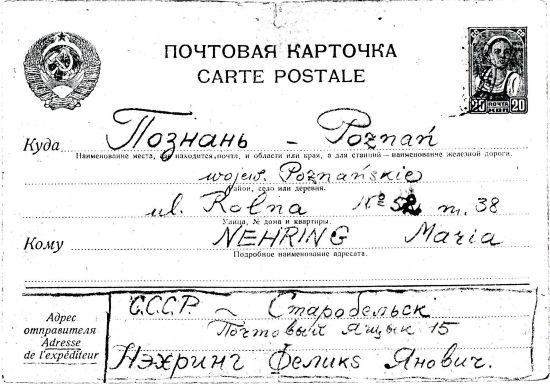 ПОЧТОВАЯ КАРТОЧКА
CARTE POSTALE
ПОЧТА
20 КОП 20
Куда Познань – Poznań
Наименование места, где находится почта, и области или края, а для станций – наименование железной дороги.
wojew. Poznańskie
Район, село или деревня.
ul. Rolna № 52 m. 38
Улица, № дома и квартиры.
Кому NEHRING Maria
Подробное наименование адресата.
Адрес
отправителя
Adresse
de l'expéditeur
С.С.С.Р. – Старобельск
Почтовый Ящык 15
Нэхринг Феликs Янович.